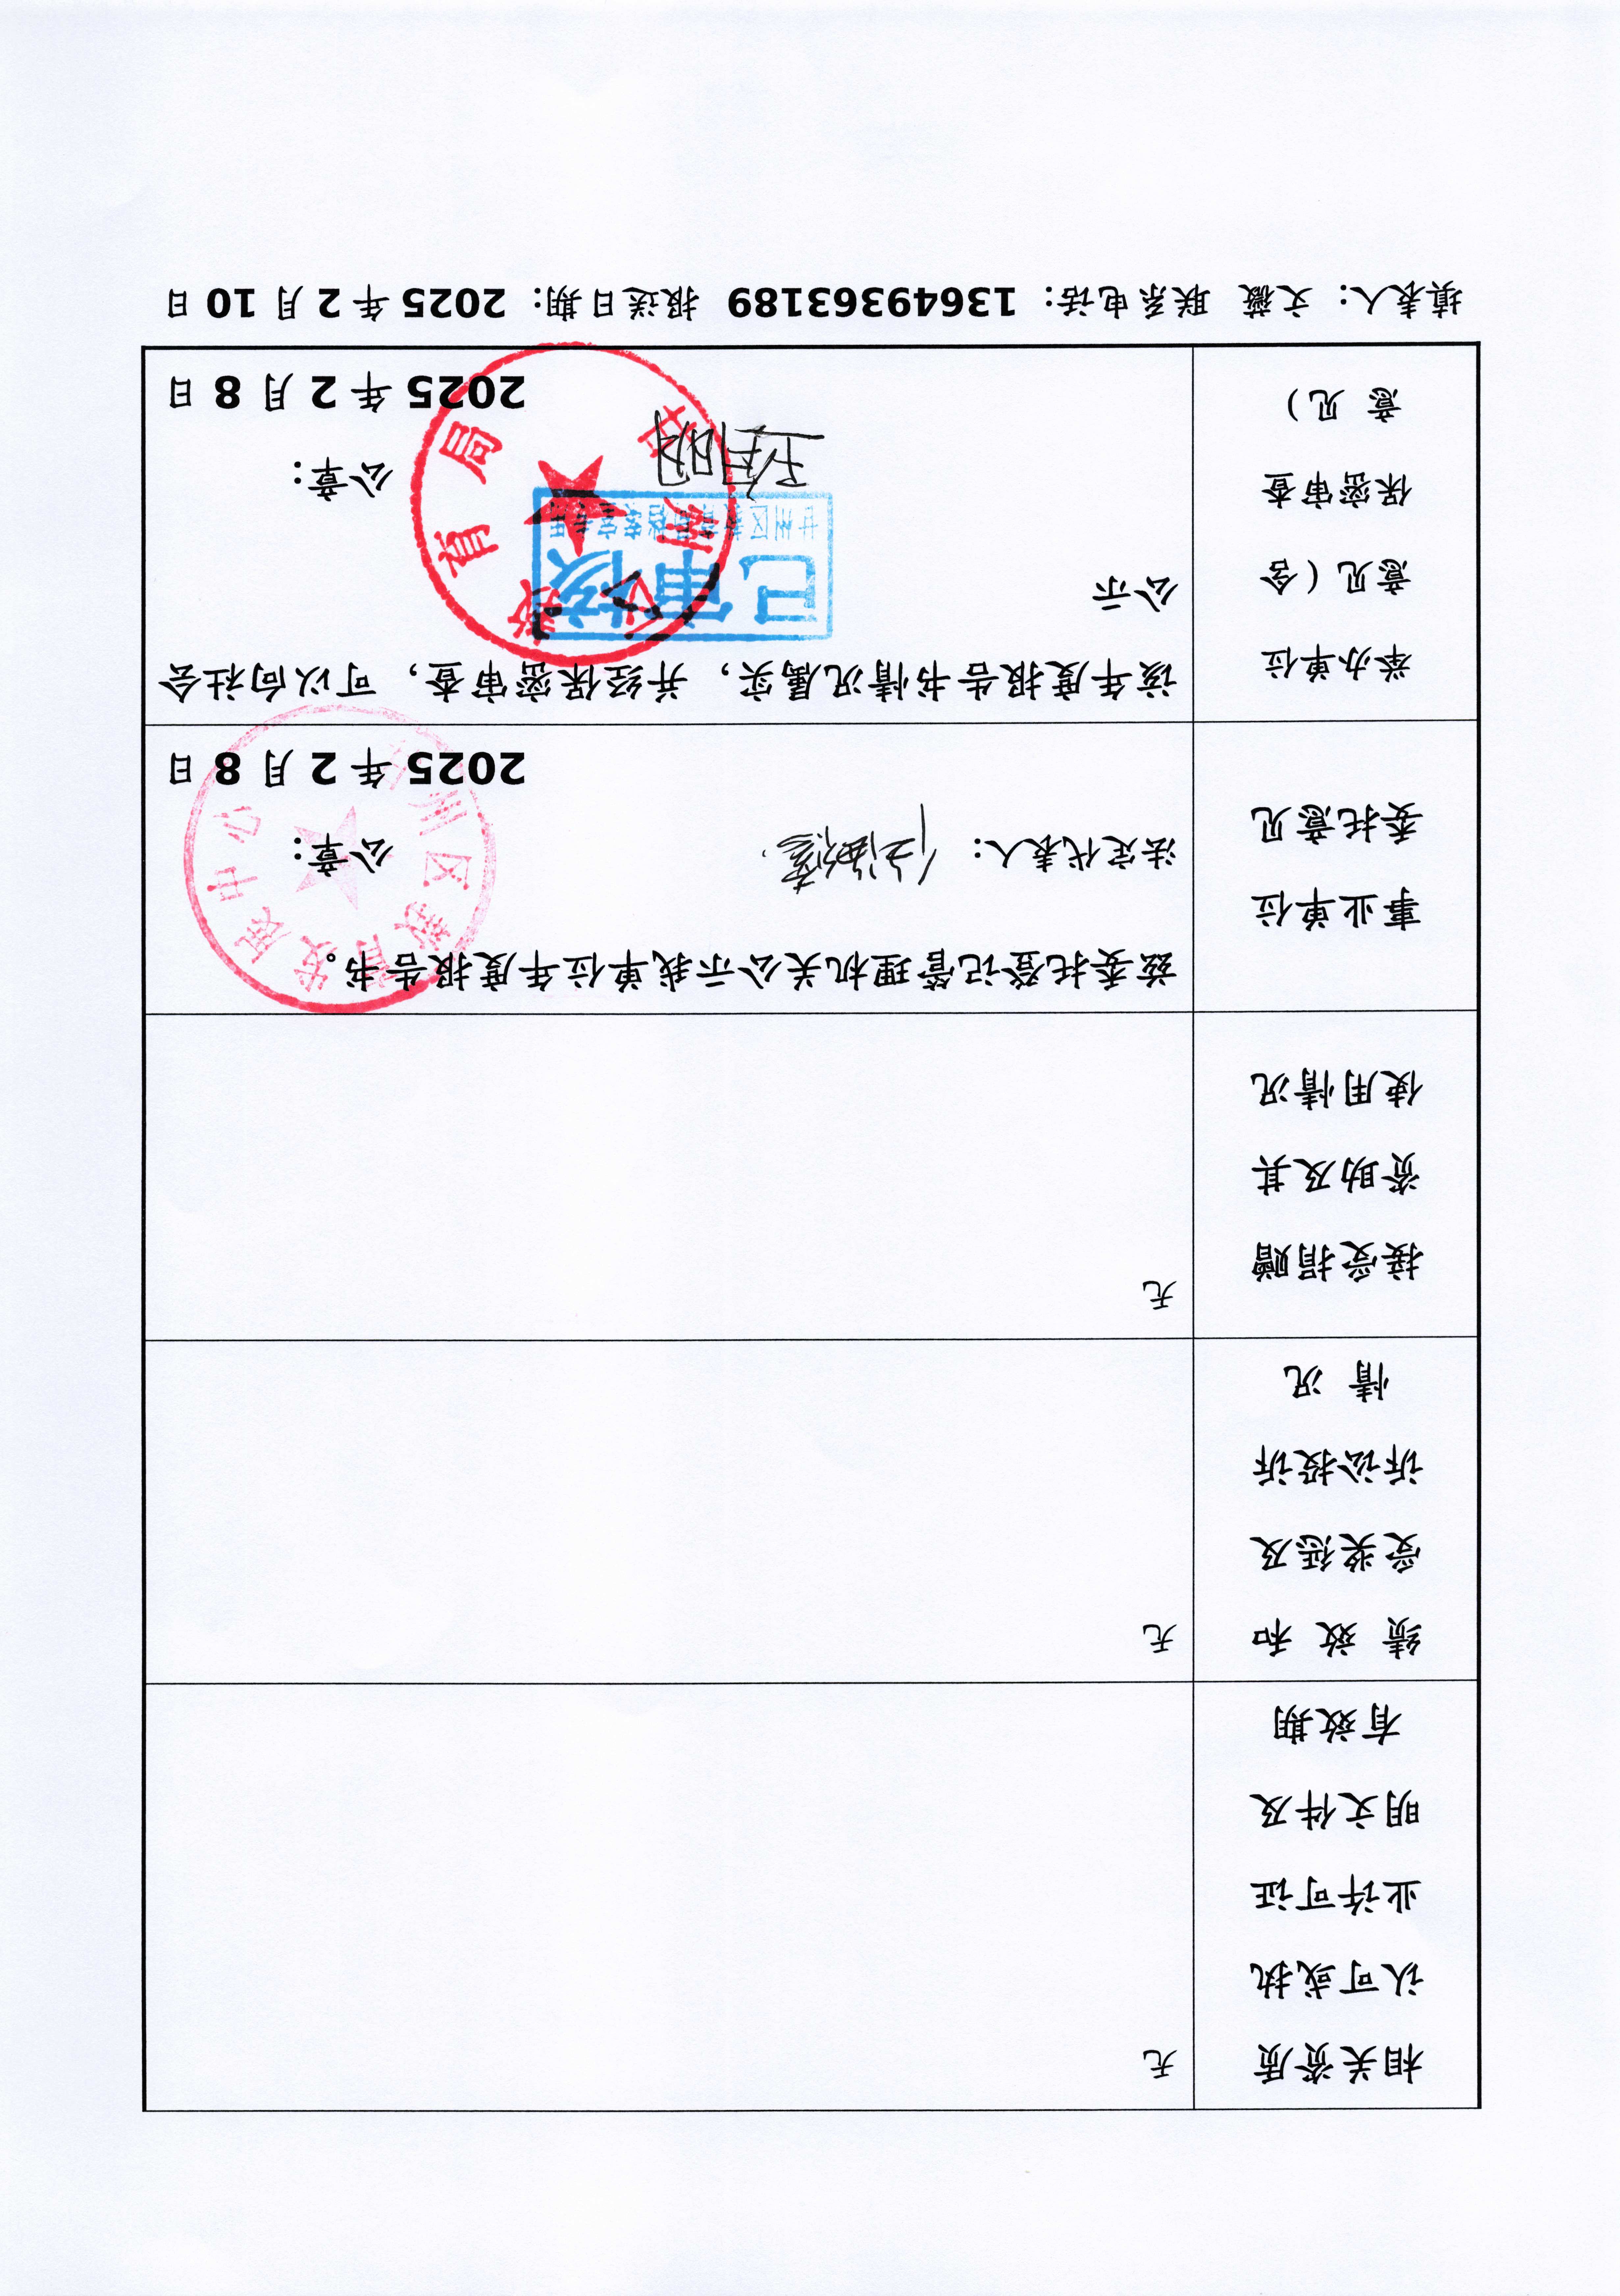 相关资质
认可或执
业许可证
明文件及
有效期
无
绩 效 和
受奖惩及
诉讼投诉
情 况
无
接受捐赠
资助及其
使用情况
无
事业单位
委托意见
兹委托登记管理机关公示我单位年度报告书。
法定代表人：
公章：
2025 年 2 月 8 日
甘州区教育发展中心
举办单位
意见（含
保密审查
意 见）
该年度报告书情况属实，并经保密审查，可以向社会
公示
已审核
公章：
2025 年 2 月 8 日
教育局
填表人：文薇 联系电话：13649363189 报送日期：2025 年 2 月 10 日